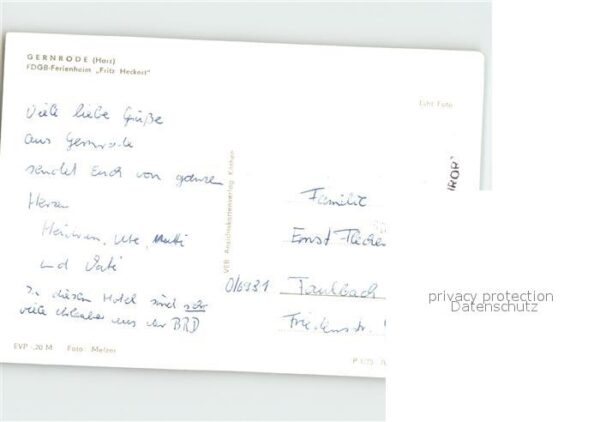 GERNRODE (Harz)
FDGB-Ferienheim „Fritz Heckert"
Echt Foto
Viele liebe Grüße
aus Gernrode
sendet Euch von ganzem
Herzen
Ute, Mutti
und Vati
In diesem Hotel sind sehr
viele Urlauber aus der BRD
VEB Ansichtskartenverlag Köthen
Familie
Ernst
Faulbach
Friedensstr.
EVP -,20 M Foto: Melzer
privacy protection
Datenschutz